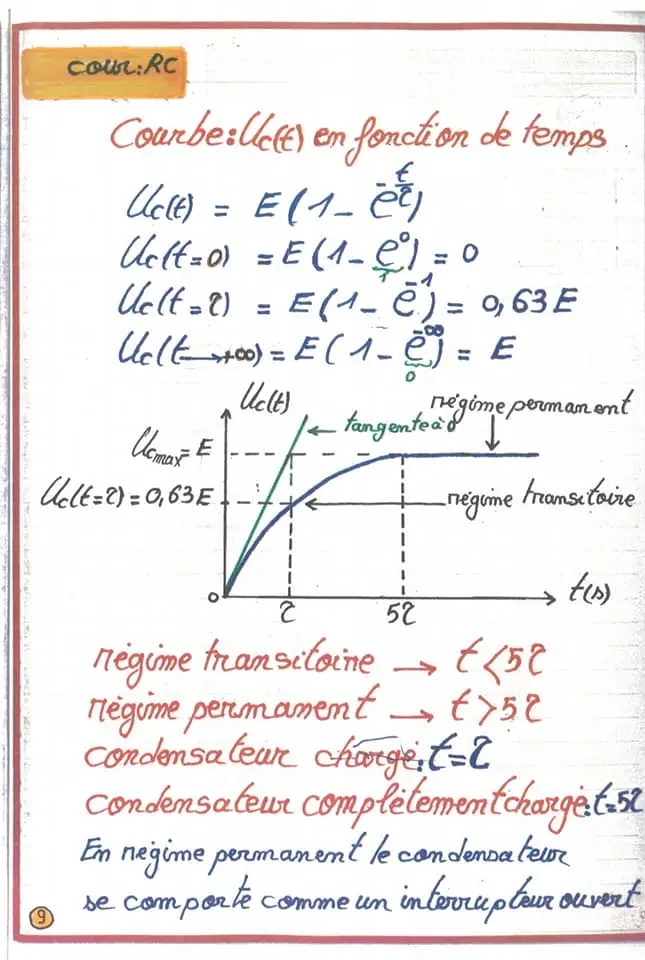 cour: RC
Courbe: Uc(t) en fonction de temps
Uc(t) = E(1 - e^-t/τ)
Uc(t=0) = E(1 - e^0) = 0
1
Uc(t=τ) = E(1 - e^-1) = 0,63E
Uc(t→+∞) = E(1 - e^-∞) = E
0
Uc(t)
régime permanent
tangente à 0
Ucmax = E
Uc(t=τ) = 0,63E
régime transitoire
0
τ
5τ
t(s)
régime transitoire → t<5τ
régime permanent → t>5τ
condensateur chargé: t=τ
condensateur complètement chargé: t=5τ
En régime permanent le condensateur
se comporte comme un interrupteur ouvert
9